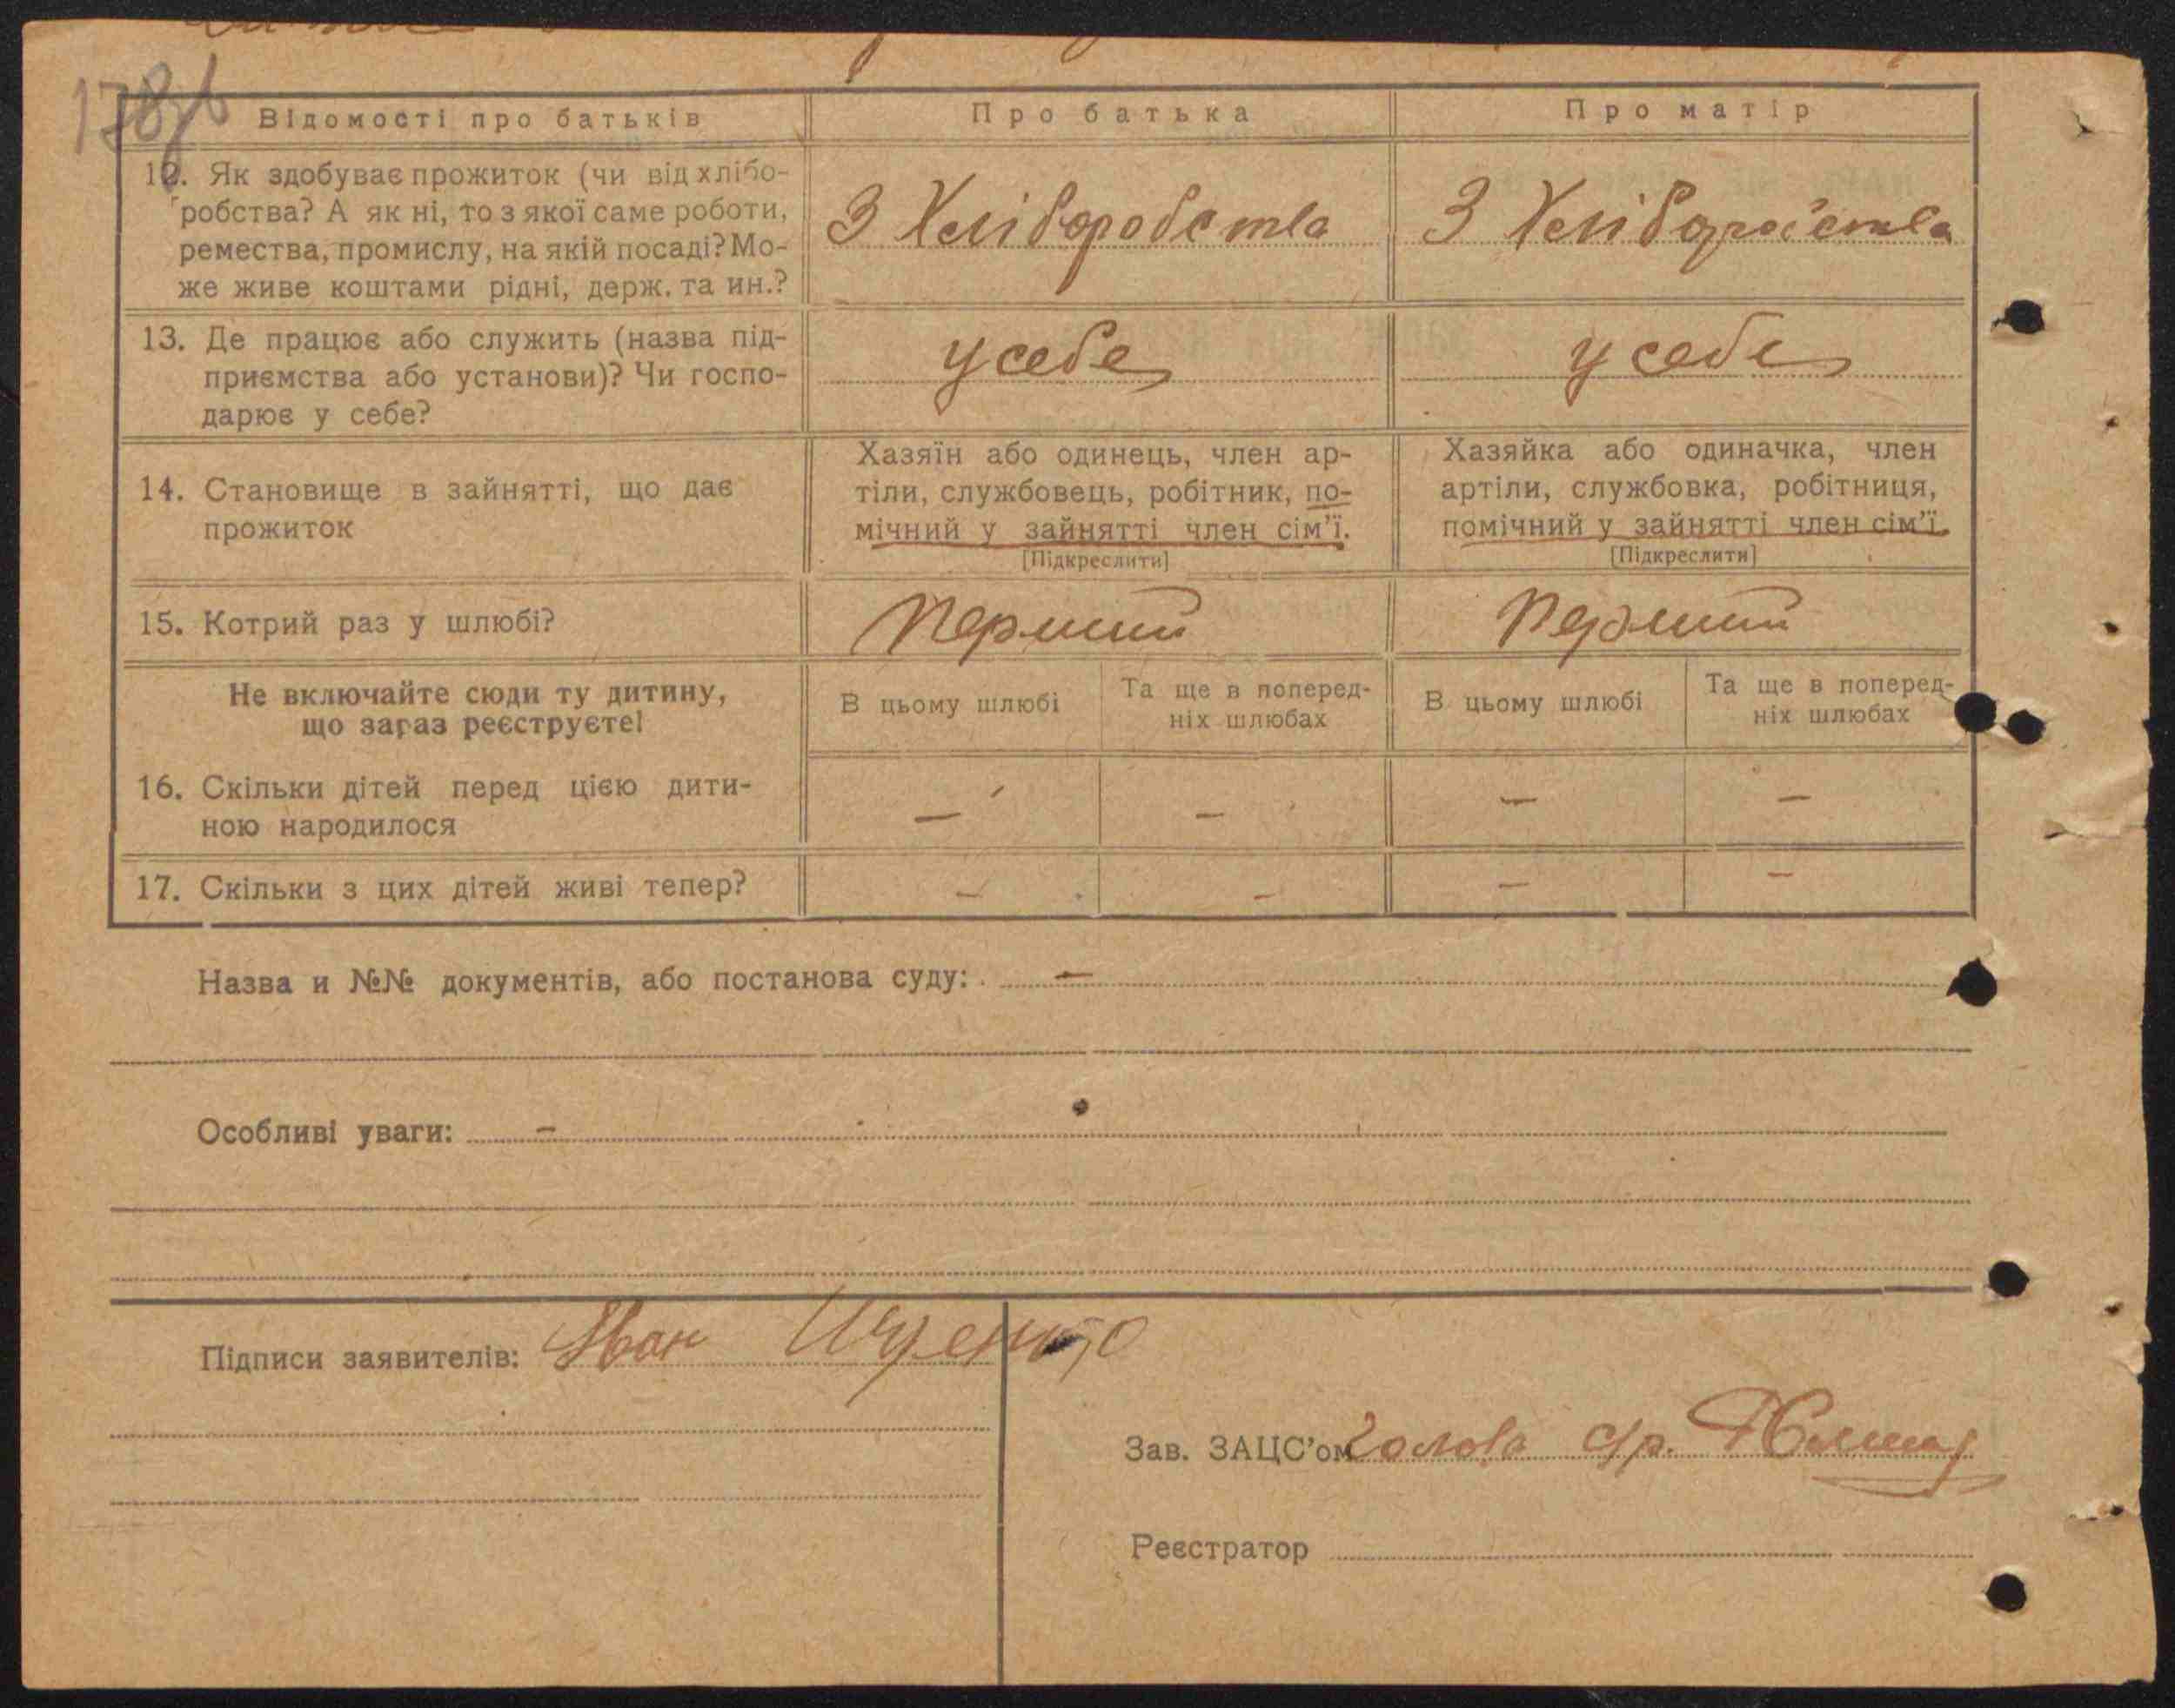 178зв
Відомості про батьків
Про батька
Про матір
12. Як здобуває прожиток (чи від хлібо-
робства? А як ні, то з якої саме роботи,
ремества, промислу, на якій посаді? Мо-
же живе коштами рідні, держ. та ин.?
З Хліборобства
З Хліборобства
13. Де працює або служить (назва під-
приємства або установи)? Чи госпо-
дарює у себе?
у себе
у себе
14. Становище в зайнятті, що дає
прожиток
Хазяїн або одинець, член ар-
тіли, службовець, робітник, по-
мічний у зайнятті член сім'ї.
[Підкреслити]
Хазяйка або одиначка, член
артіли, службовка, робітниця,
помічний у зайнятті член сім'ї.
[Підкреслити]
15. Котрий раз у шлюбі?
Перший
Перший
Не включайте сюди ту дитину,
що зараз реєструєте!
В цьому шлюбі
Та ще в поперед-
ніх шлюбах
В цьому шлюбі
Та ще в поперед-
ніх шлюбах
16. Скільки дітей перед цією дити-
ною народилося
— — — —
17. Скільки з цих дітей живі тепер?
— — — —
Назва и №№ документів, або постанова суду: —
Особливі уваги: —
Підписи заявителів: Іван
Зав. ЗАЦС'ом Голова с/р.
Реєстратор